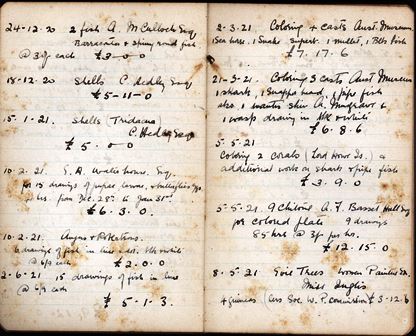 24-12-20 2 fish A. McCulloch Esq
Barracuta & Spiny
@ 30/- each £3-0-0
18-12-20 Shells C. Hedley Esq
£5-11-0
15.1.21. Shells (Tridacna)
C. Hedley Esq
£5.0.0
10.2.21. G. A. Waterhouse. Esq.
for 15 drawings of pupae larvae, & butterflies
hrs. from Dec. 28th to Jan 31st
£6.3.0.
10.2.21. Angus & Robertson.
drawings of fish in
@ 6/8 each £2.0.0
2-6-21 15 drawings of fish in line
@ 6/9 each
£5-1-3.
2-3-21. Coloring 4 casts Aust. Museum
Sea horse. 1 Snake 1 mullet, 1
£7.17.6
21-3-21. Coloring 3 casts Aust Museum
1 shark, 1 Snapper head, 1 pipe fish
also 1 A. Musgrave &
1 wasp drawing in blk & white
£6.8.6
5-5-21
Coloring 2 corals (Lord Howe Is.) &
additional work on shark & pipe fish
£3.9.0
5-5-21. 9 Chitons A. F. Basset Hull Esq
for colored plate 9 drawings
85 hrs @ 3/- per hr.
£12.15.0
8.5.21 Soie Trees Women Painters
Miss Inglis
4 guineas (less Soc. W. P. commission £3-12-6